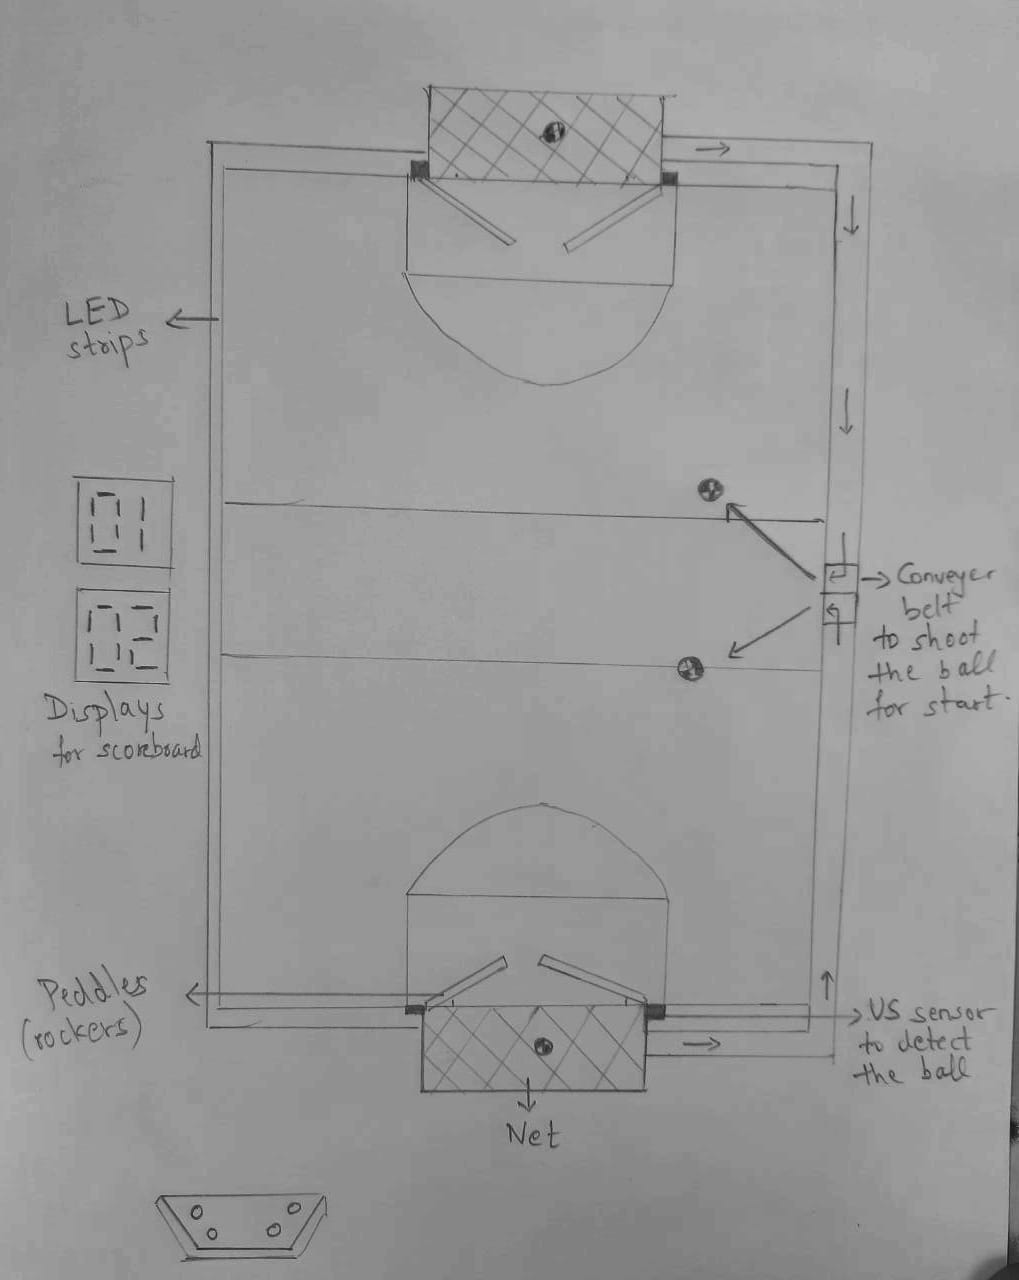 LED
strips
01
02
Displays
for scoreboard
Conveyer
belt
to shoot
the ball
for start.
Peddles
(rockers)
US sensor
to detect
the ball
Net